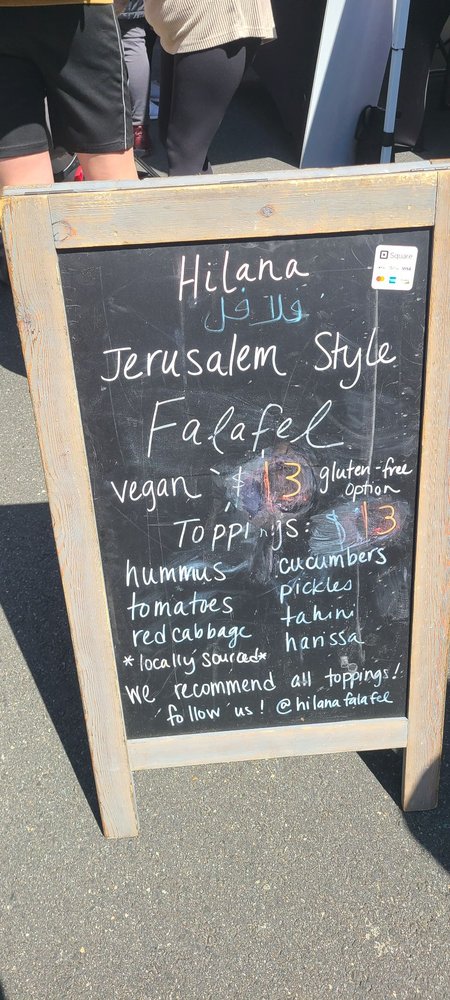 Hilana
فلافل
Square
VISA
Jerusalem Style
Falafel
vegan $13 gluten-free option
Toppings: $13
hummus cucumbers
tomatoes pickles
red cabbage tahini
*locally sourced* harissa
We recommend all toppings!
follow us! @hilanafalafel